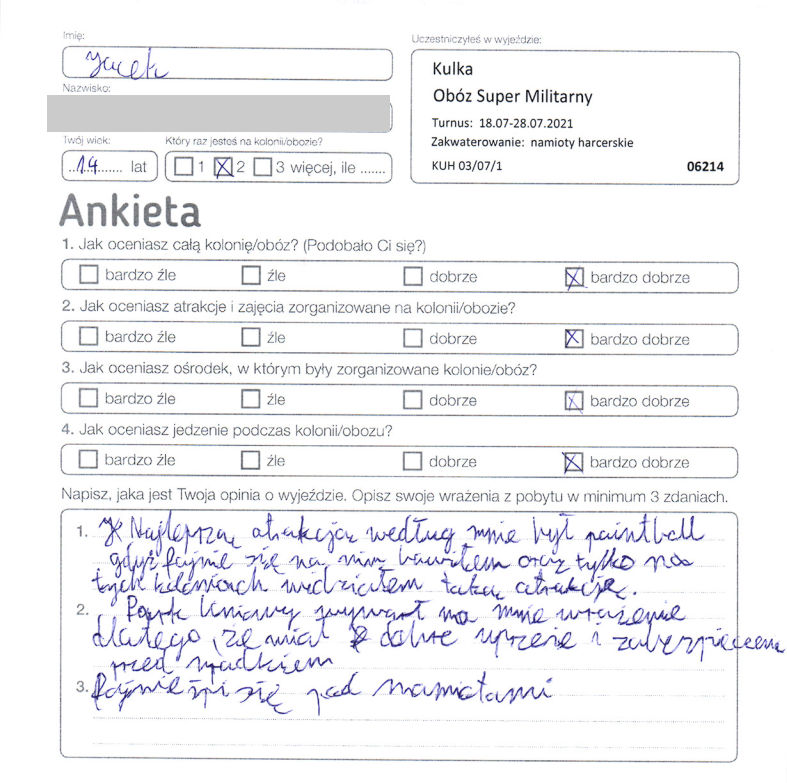 Imię:
Jacek
Nazwisko:
Twój wiek:
..14...... lat
Który raz jesteś na kolonii/obozie?
1 2 3 więcej, ile .......
Uczestniczyłeś w wyjeździe:
Kulka
Obóz Super Militarny
Turnus: 18.07-28.07.2021
Zakwaterowanie: namioty harcerskie
KUH 03/07/1 06214
Ankieta
1. Jak oceniasz całą kolonię/obóz? (Podobało Ci się?)
bardzo źle źle dobrze bardzo dobrze
2. Jak oceniasz atrakcje i zajęcia zorganizowane na kolonii/obozie?
bardzo źle źle dobrze bardzo dobrze
3. Jak oceniasz ośrodek, w którym były zorganizowane kolonie/obóz?
bardzo źle źle dobrze bardzo dobrze
4. Jak oceniasz jedzenie podczas kolonii/obozu?
bardzo źle źle dobrze bardzo dobrze
Napisz, jaka jest Twoja opinia o wyjeździe. Opisz swoje wrażenia z pobytu w minimum 3 zdaniach.
1. Najlepszą atrakcją według mnie był paintball
gdyż fajnie się na nim bawiłem oraz tylko na
tych koloniach widziałem taką atrakcję.
2. Park liniowy wywarł na mnie wrażenie
dlatego, że miał dobre uprzęże i zabezpieczenie
przed upadkiem
3. fajnie śpi się pod namiotami